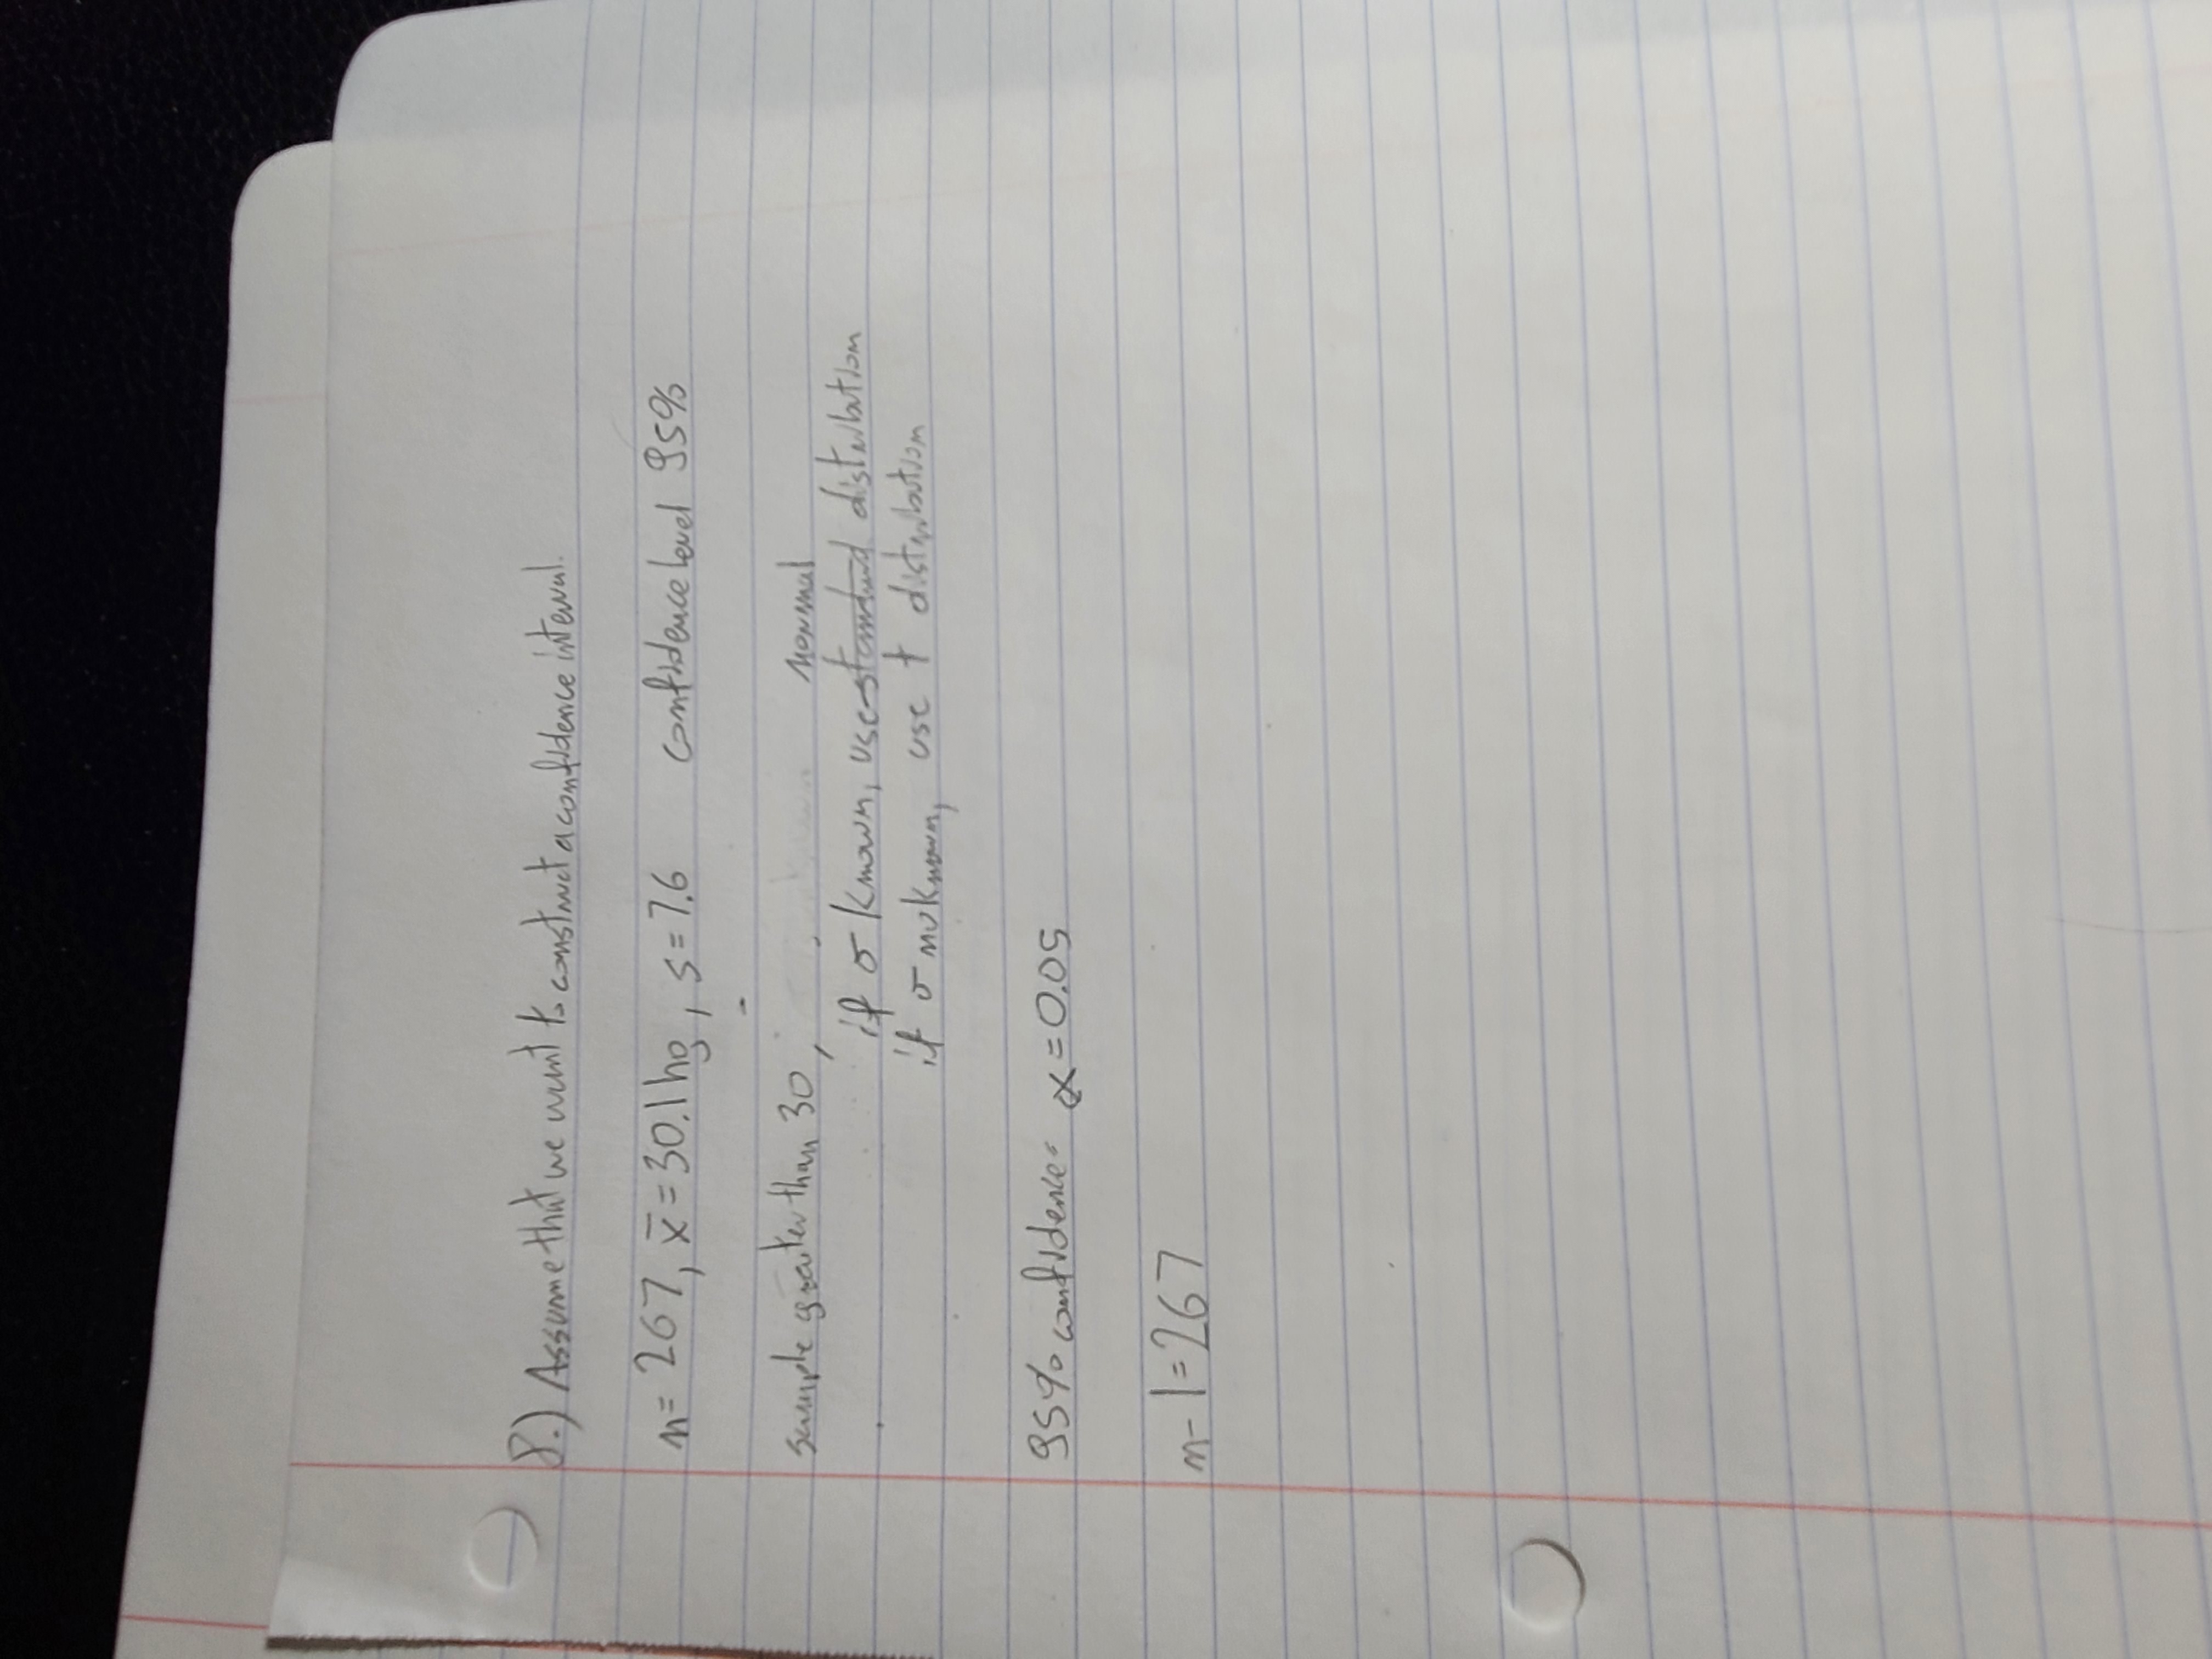 8.) Assume that we want to construct a confidence interval.
n = 267, x̄ = 30.1 hg, s = 7.6 confidence level 95%
sample greater than 30, normal
if σ known, use standard distribution
if σ unknown, use t distribution
95% confidence α = 0.05
n - 1 = 267